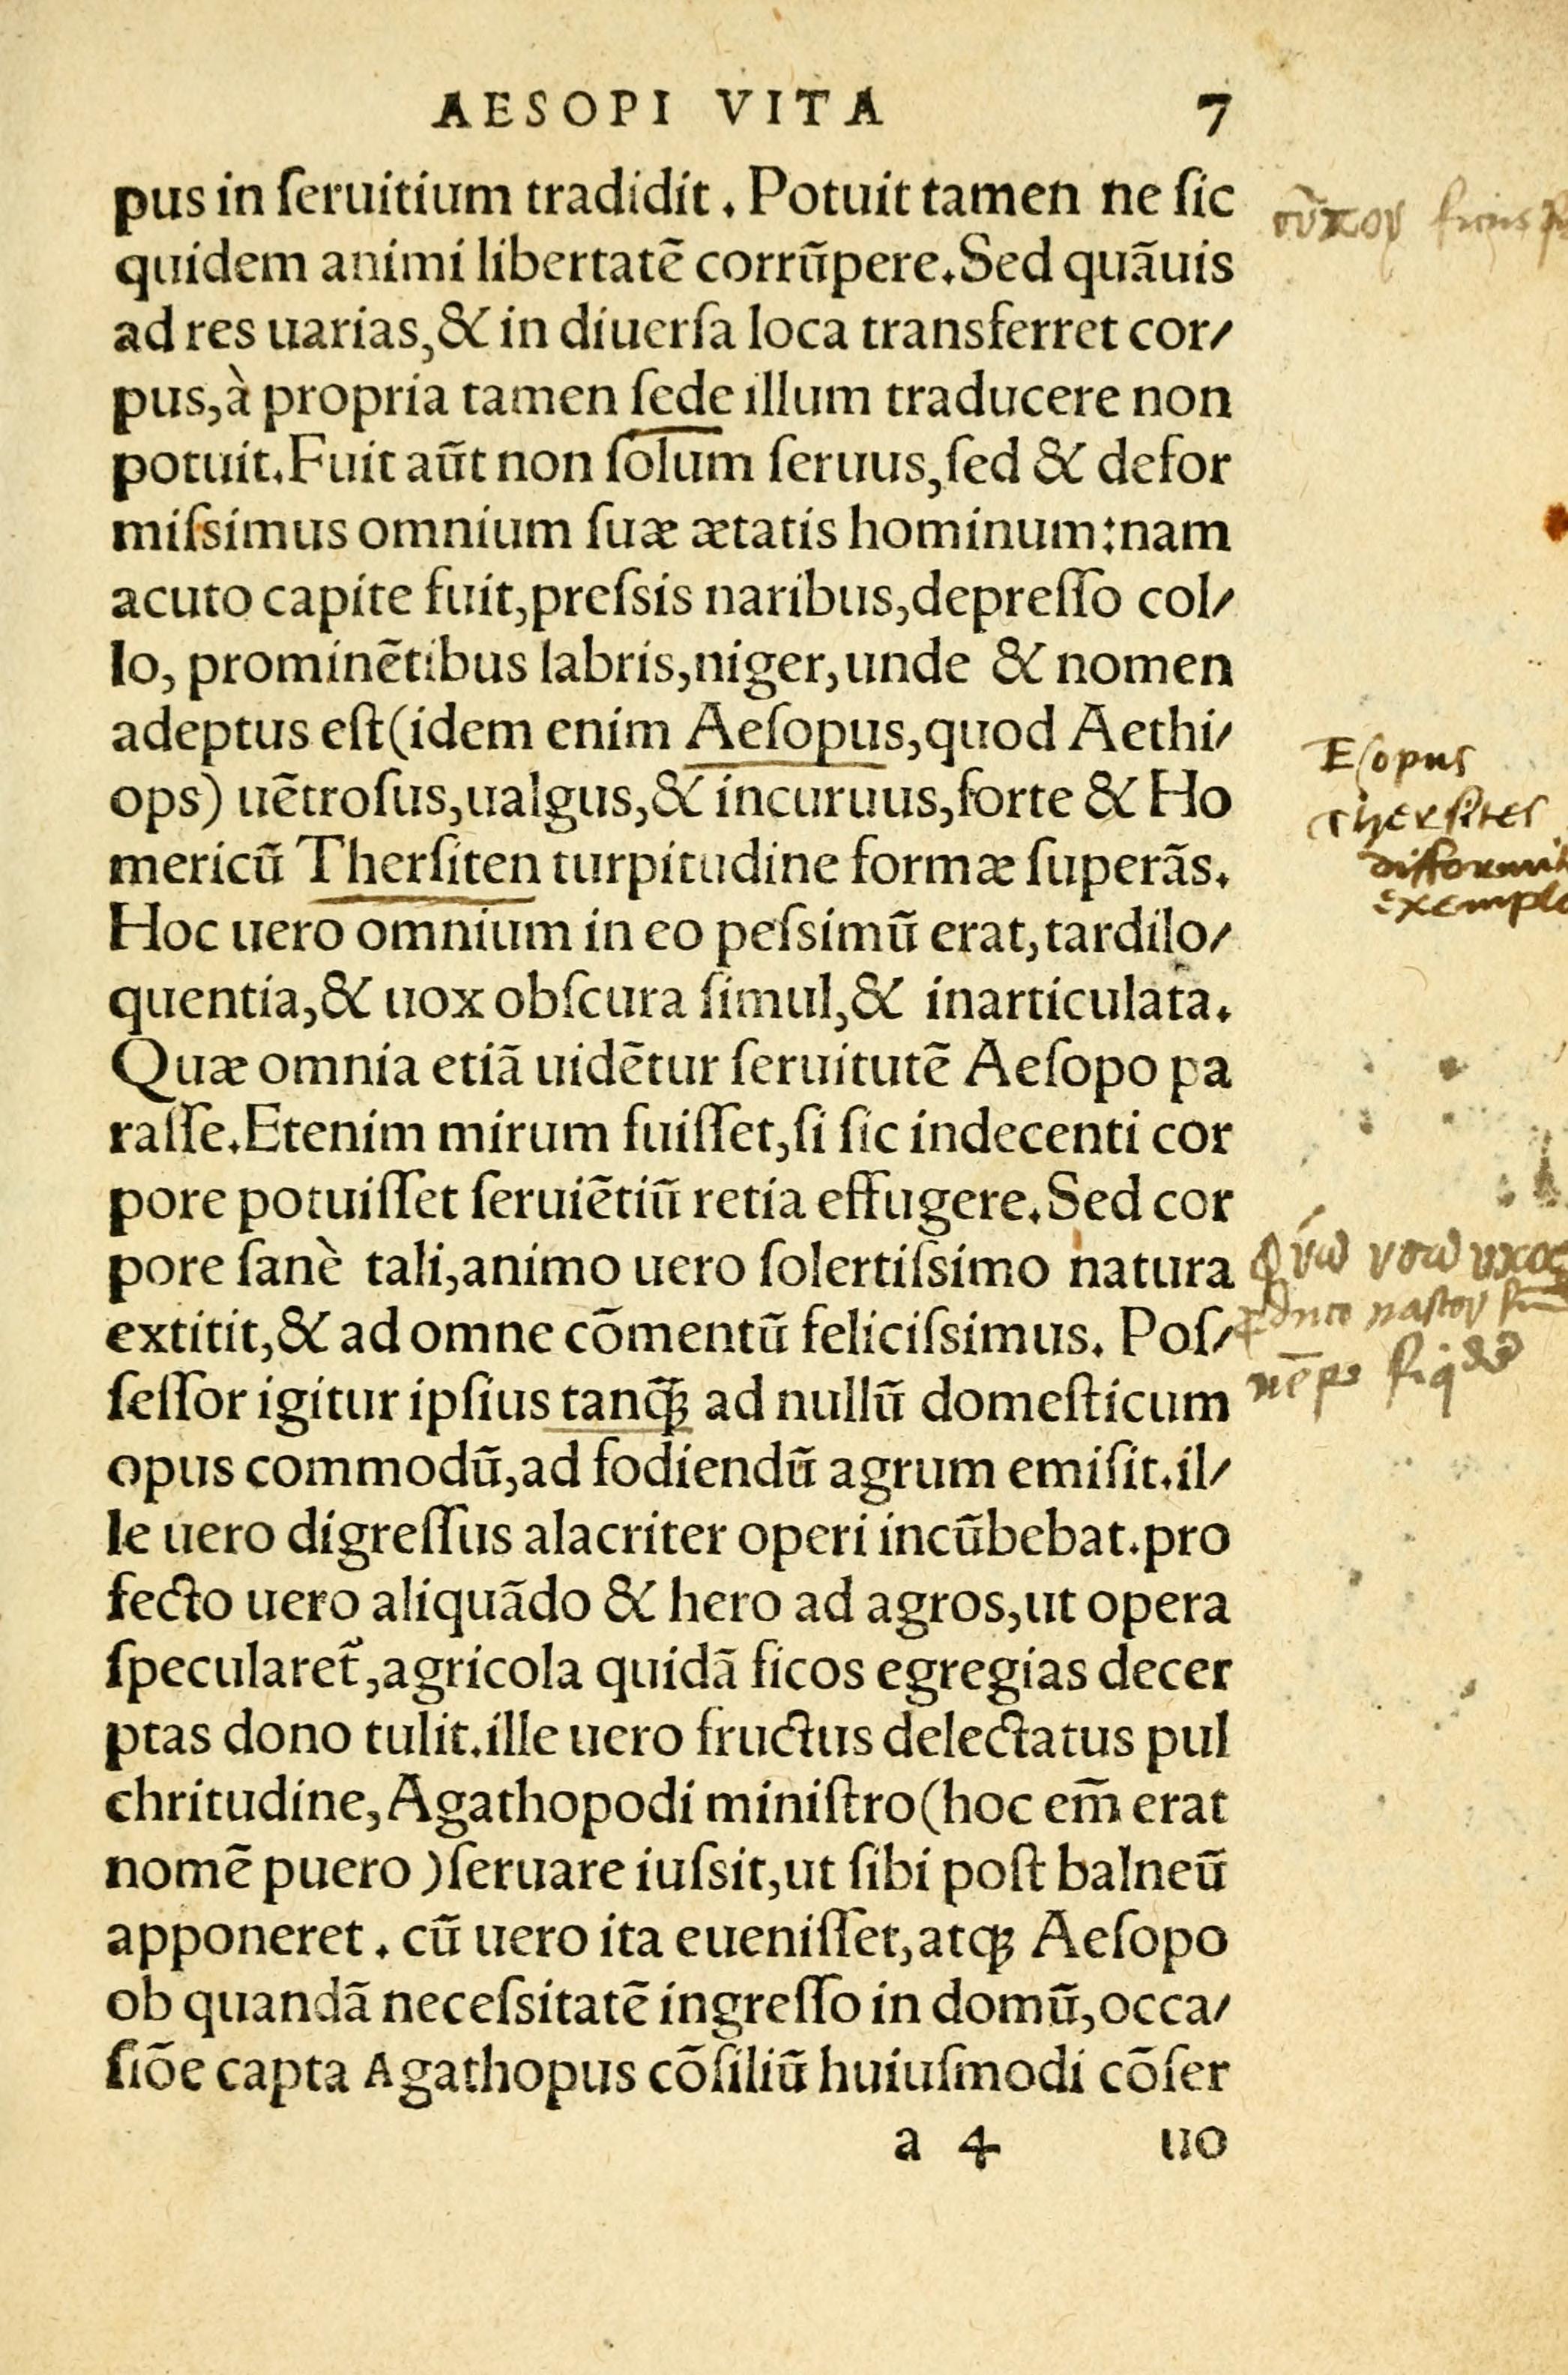 AESOPI VITA 7
pus in ſeruitium tradidit. Potuit tamen ne ſic
quidem animi libertatē corrūpere. Sed quāuis
ad res uarias, & in diuerſa loca transferret cor/
pus, à propria tamen ſede illum traducere non
potuit. Fuit aūt non ſolum ſeruus, ſed & defor
miſsimus omnium ſuæ ætatis hominum: nam
acuto capite fuit, preſsis naribus, depreſſo col/
lo, prominētibus labris, niger, unde & nomen
adeptus eſt (idem enim Aeſopus, quod Aethi/
ops) uētroſus, ualgus, & incuruus, forte & Ho
mericū Therſiten turpitudine formæ ſuperās.
Hoc uero omnium in eo peſsimū erat, tardilo/
quentia, & uox obſcura ſimul, & inarticulata.
Quæ omnia etiā uidētur ſeruitutē Aeſopo pa
raſſe. Etenim mirum fuiſſet, ſi ſic indecenti cor
pore potuiſſet ſeruiētiū retia effugere. Sed cor
pore ſanè tali, animo uero ſolertiſsimo natura
extitit, & ad omne cōmentū feliciſsimus. Poſ/
ſeſſor igitur ipſius tanq̄ꝫ ad nullū domeſticum
opus commodū, ad fodiendū agrum emiſit. il/
le uero digreſſus alacriter operi incūbebat. pro
fecto uero aliquādo & hero ad agros, ut opera
ſpecularet᷑, agricola quidā ficos egregias decer
ptas dono tulit. ille uero fructus delectatus pul
chritudine, Agathopodi miniſtro (hoc em̄ erat
nomē puero) ſeruare iuſsit, ut ſibi poſt balneū
apponeret. cū uero ita eueniſſet, atqꝫ Aeſopo
ob quandā neceſsitatē ingreſſo in domū, occa/
ſiōe capta Agathopus cōſiliū huiuſmodi cōſer
a 4 uo
Eſopus
Therſites